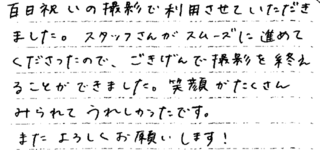 百日祝いの撮影で利用させていただき
ました。スタッフさんがスムーズに進めて
くださったので、ごきげんで撮影を終え
ることができました。笑顔がたくさん
みられてうれしかったです。
またよろしくお願いします!